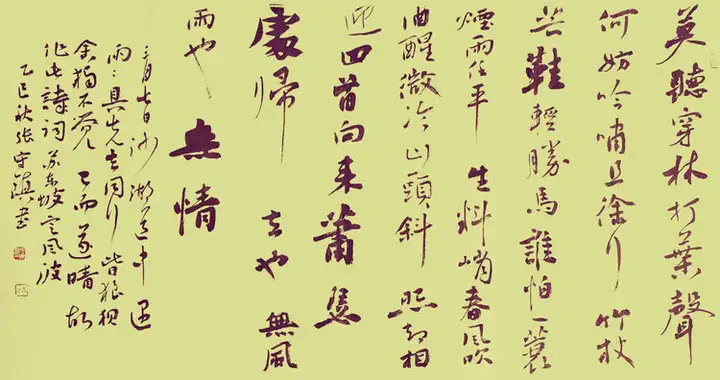 莫聽穿林打葉聲
何妨吟嘯且徐行竹杖
芒鞋輕勝馬誰怕一蓑
煙雨任平生料峭春風吹
酒醒微冷山頭斜照却相
迎回首向来蕭瑟
處歸去也無風
雨也無情
三月七日沙湖道中遇
雨雨具先去同行皆狼狽
余獨不覺已而遂晴故
作此詩詞蘇東坡定風波
乙巳秋張守鎮書